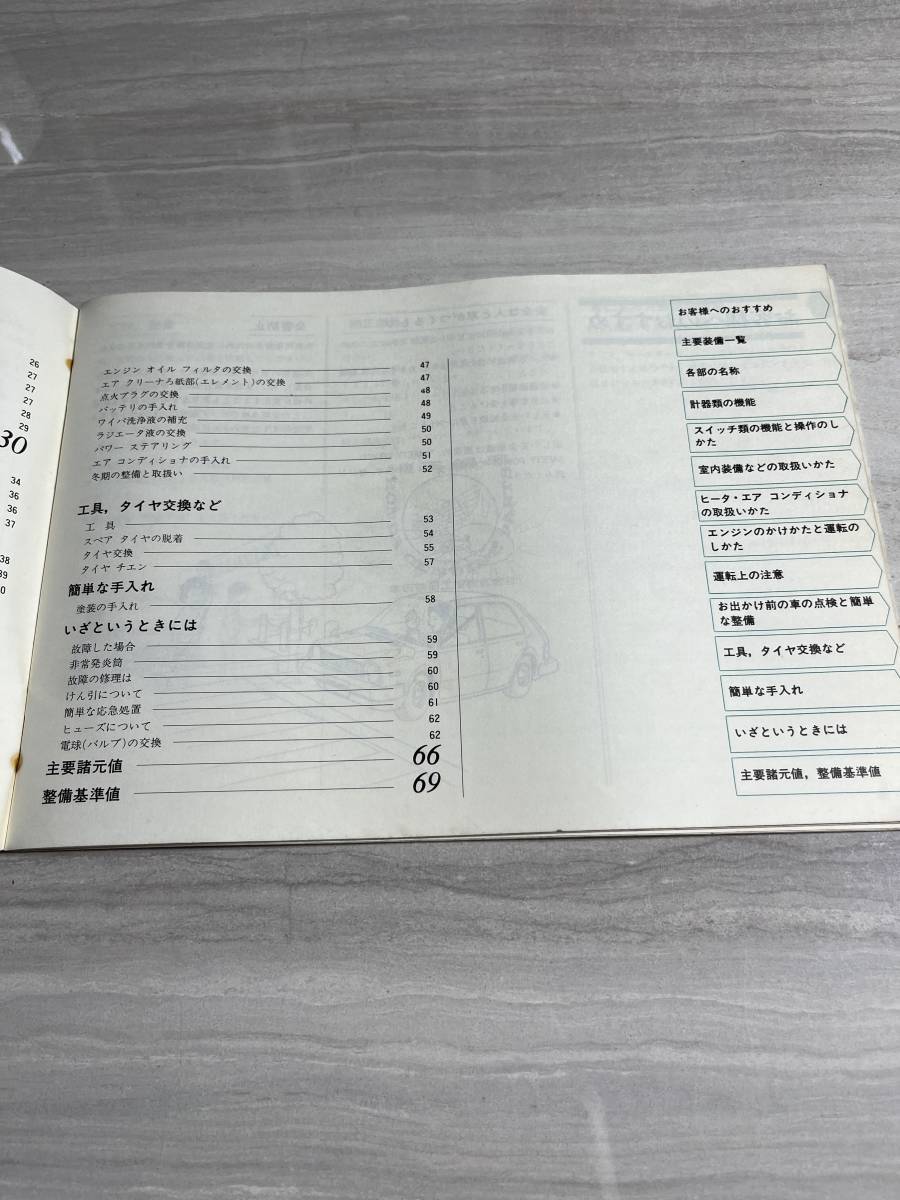 26
27
27
27
28
29
30
34
36
36
37
38
39
0
エンジン オイル フィルタの交換 47
エア クリーナろ紙部(エレメント)の交換 47
点火プラグの交換 48
バッテリの手入れ 48
ワイパ洗浄液の補充 49
ラジエータ液の交換 50
パワー ステアリング 50
エア コンディショナの手入れ 51
冬期の整備と取扱い 52
工具，タイヤ交換など
工 具 53
スペア タイヤの脱着 54
タイヤ交換 55
タイヤ チエン 57
簡単な手入れ
塗装の手入れ 58
いざというときには
故障した場合 59
非常発炎筒 59
故障の修理は 60
けん引について 60
簡単な応急処置 61
ヒューズについて 62
電球(バルブ)の交換 62
主要諸元値 66
整備基準値 69
お客様へのおすすめ
主要装備一覧
各部の名称
計器類の機能
スイッチ類の機能と操作のし
かた
室内装備などの取扱いかた
ヒータ・エア コンディショナ
の取扱いかた
エンジンのかけかたと運転の
しかた
運転上の注意
お出かけ前の車の点検と簡単
な整備
工具，タイヤ交換など
簡単な手入れ
いざというときには
主要諸元値，整備基準値